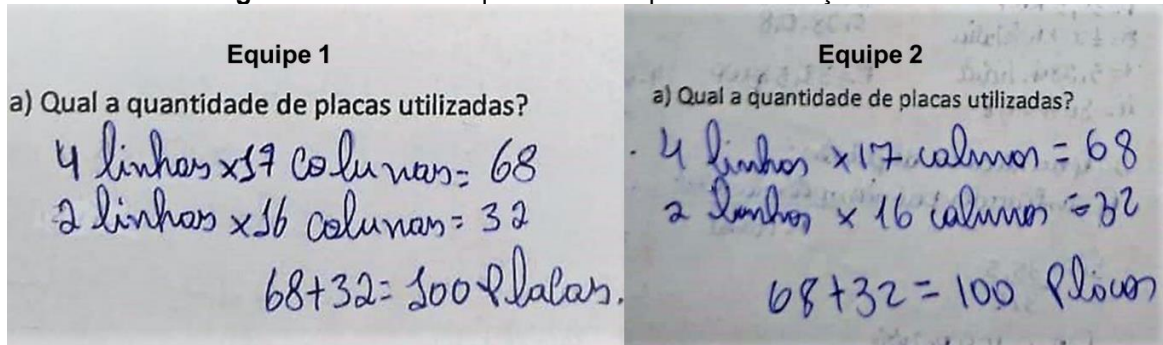 Equipe 1
a) Qual a quantidade de placas utilizadas?
4 linhas x 17 colunas = 68
2 linhas x 16 colunas = 32
68 + 32 = 100 Placas.
Equipe 2
a) Qual a quantidade de placas utilizadas?
4 linhas x 17 colunas = 68
2 linhas x 16 colunas = 32
68 + 32 = 100 Placas